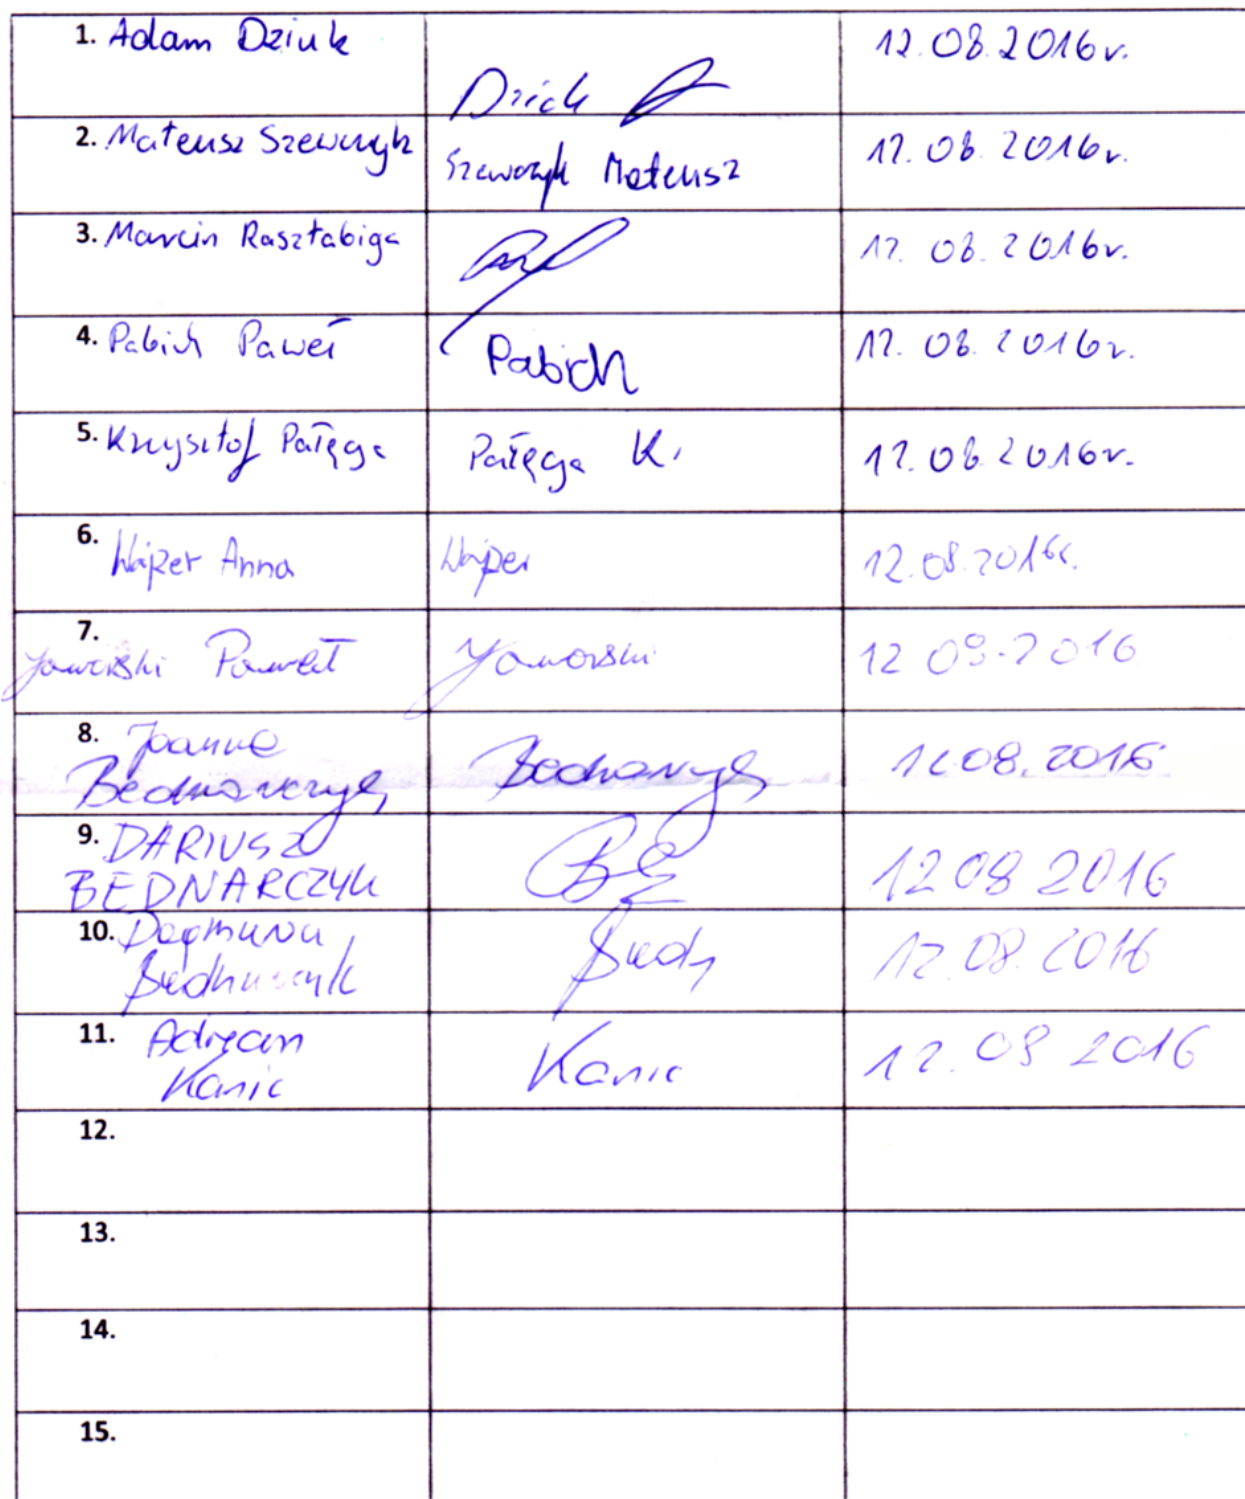 1. Adam Dziuk 12.08.2016r.
2. Mateusz Szewczyk Szewczyk Mateusz 12.08.2016r.
3. Marcin Rasztabiga 12.08.2016r.
4. Pabich Paweł Pabich 12.08.2016r.
5. Krzysztof Pałęga Pałęga K. 12.08.2016r.
6. Anna 12.08.2016r.
7. Jaworski Paweł Jaworski 12 08.2016
8. Joanna
Bednarczyk Bednarczyk 12.08.2016
9. DARIUSZ
BEDNARCZYK 12 08 2016
10. Dagmara
Bednarczyk 12.08.2016
11. Adrian
Kanic Kanic 12.08 2016
12.
13.
14.
15.